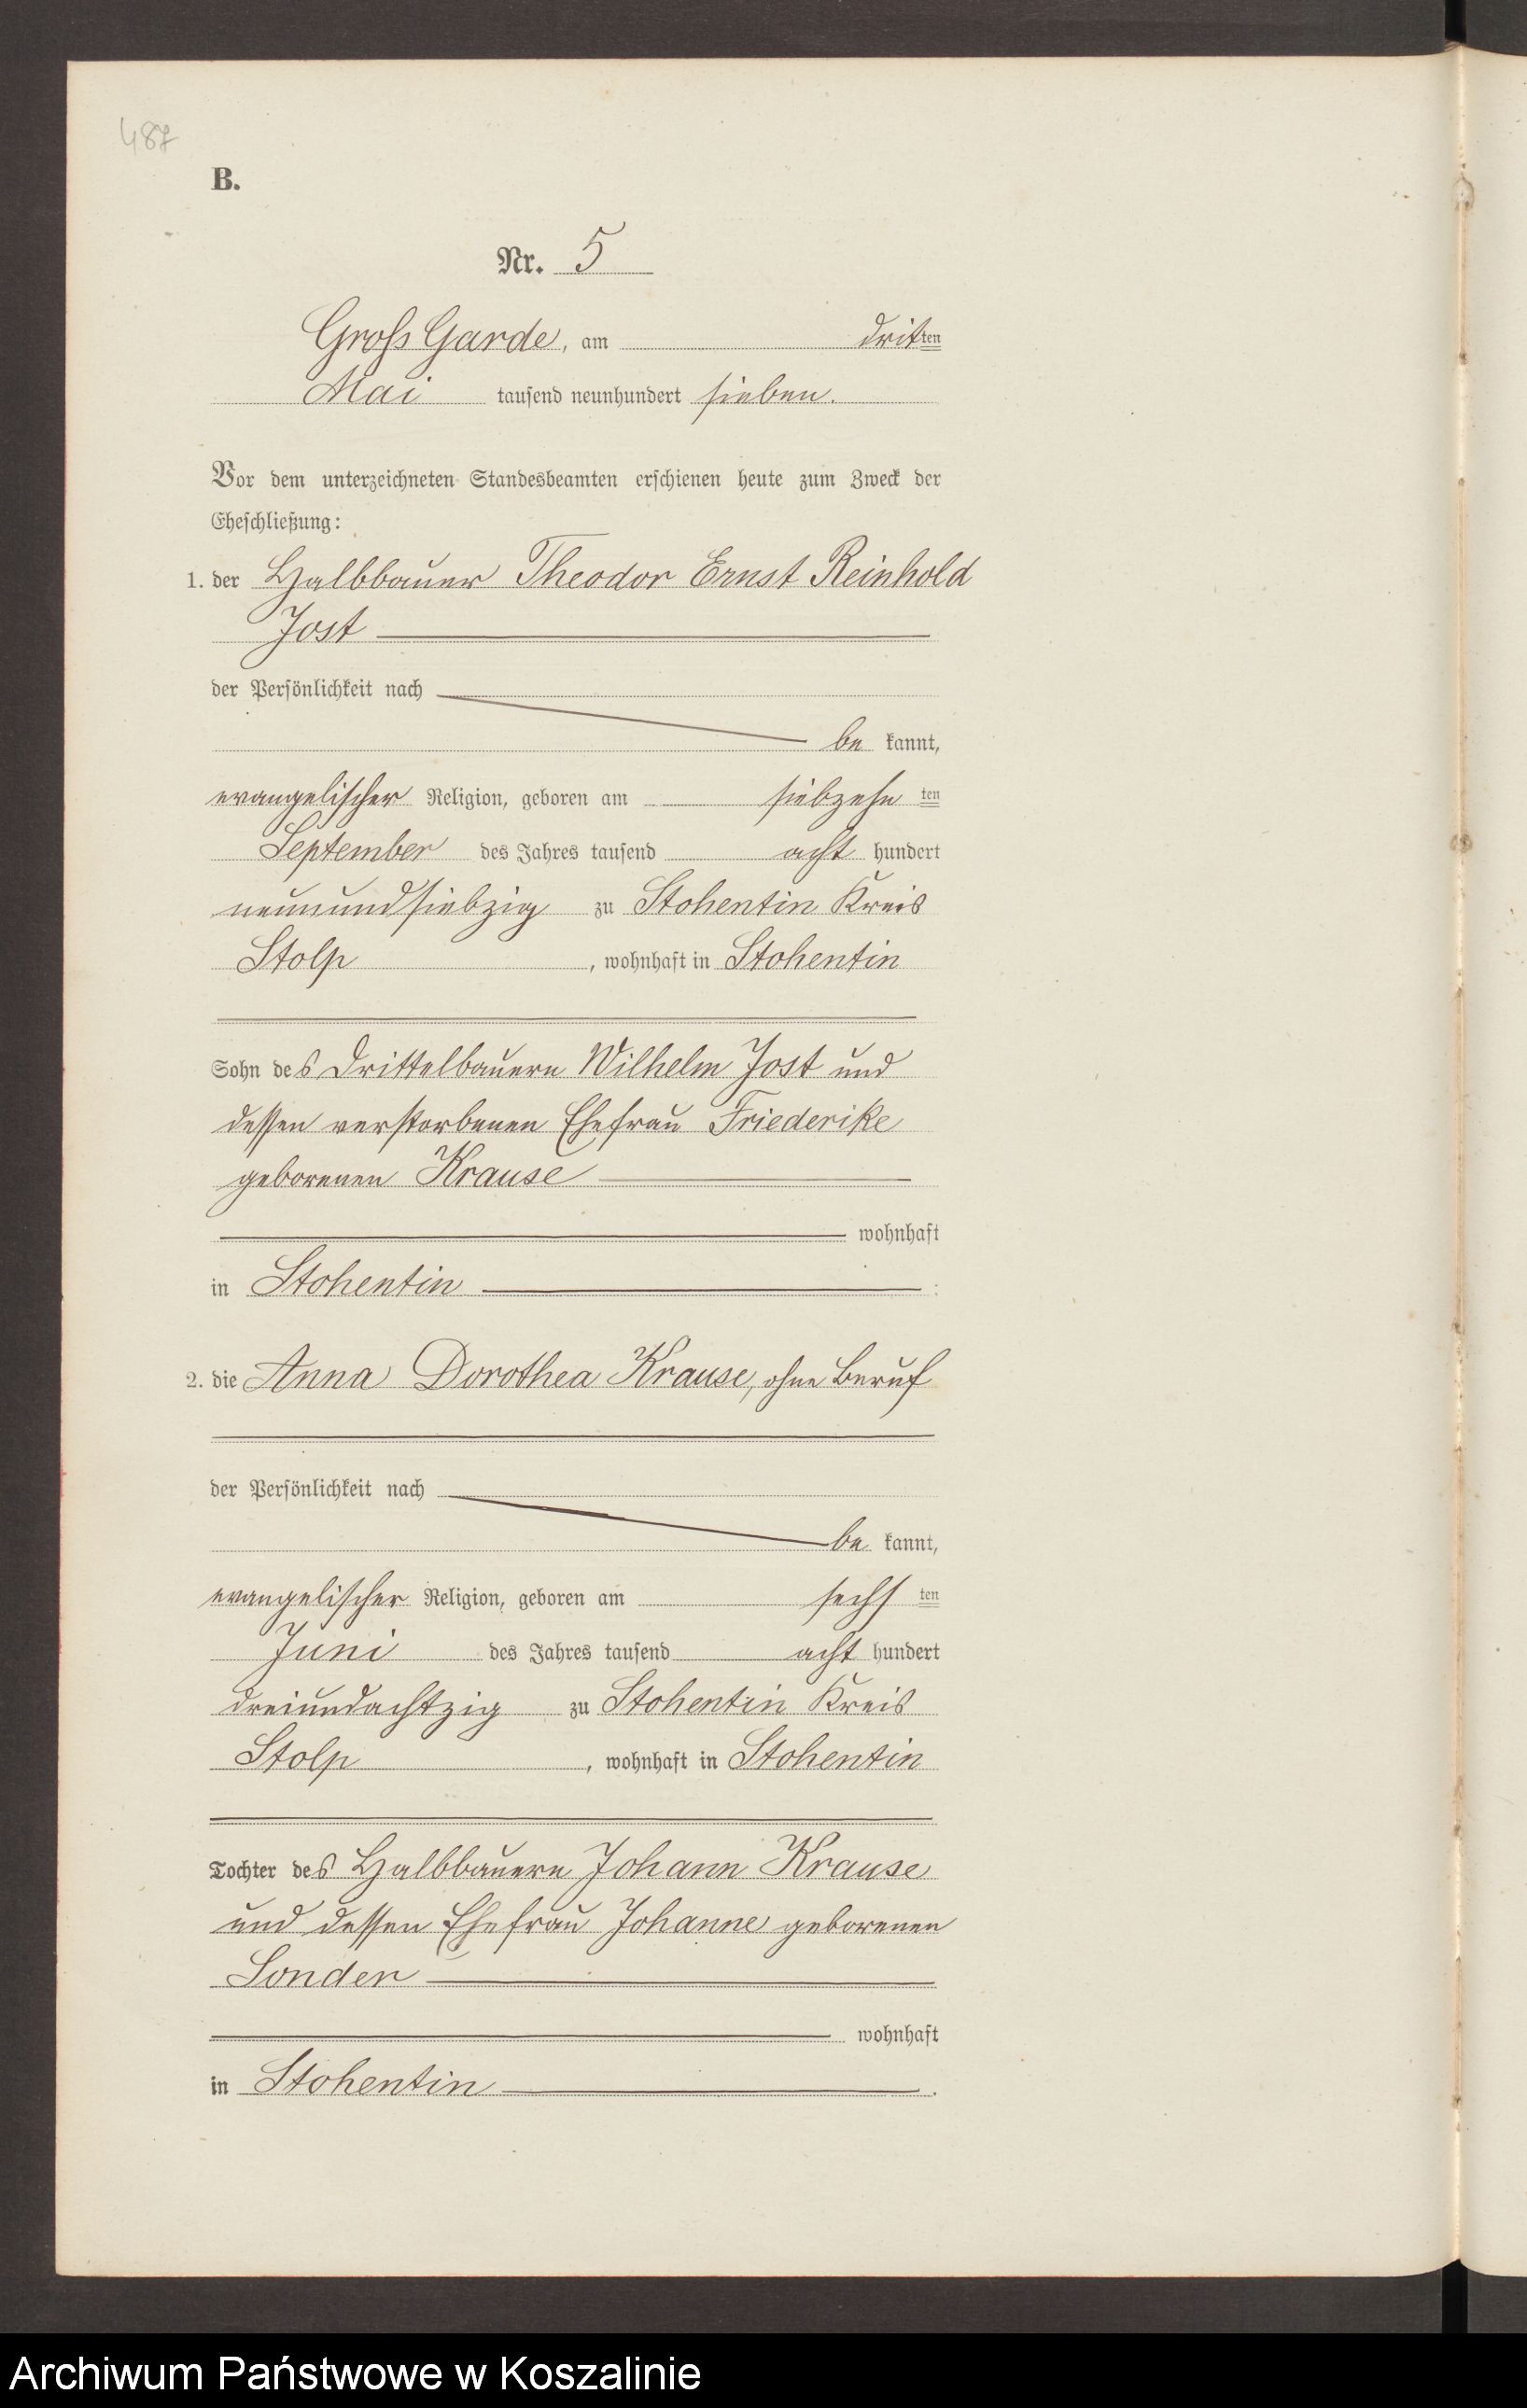 487
B.
Nr. 5
Gross Garde, am dritten
Mai tausend neunhundert sieben.
Vor dem unterzeichneten Standesbeamten erschienen heute zum Zweck der
Eheschließung:
1. der Halbbauer Theodor Ernst Reinhold
Jost
der Persönlichkeit nach
be kannt,
evangelischer Religion, geboren am siebzehn ten
September des Jahres tausend acht hundert
neunundsiebzig zu Stohentin Kreis
Stolp, wohnhaft in Stohentin
Sohn des Drittelbauern Wilhelm Jost und
dessen verstorbenen Ehefrau Friederike
geborenen Krause
wohnhaft
in Stohentin :
2. die Anna Dorothea Krause, ohne Beruf
der Persönlichkeit nach
be kannt,
evangelischer Religion, geboren am sechs ten
Juni des Jahres tausend acht hundert
dreiundachtzig zu Stohentin Kreis
Stolp, wohnhaft in Stohentin
Tochter des Halbbauern Johann Krause
und dessen Ehefrau Johanne geborenen
Sonder
wohnhaft
in Stohentin .
Archiwum Państwowe w Koszalinie